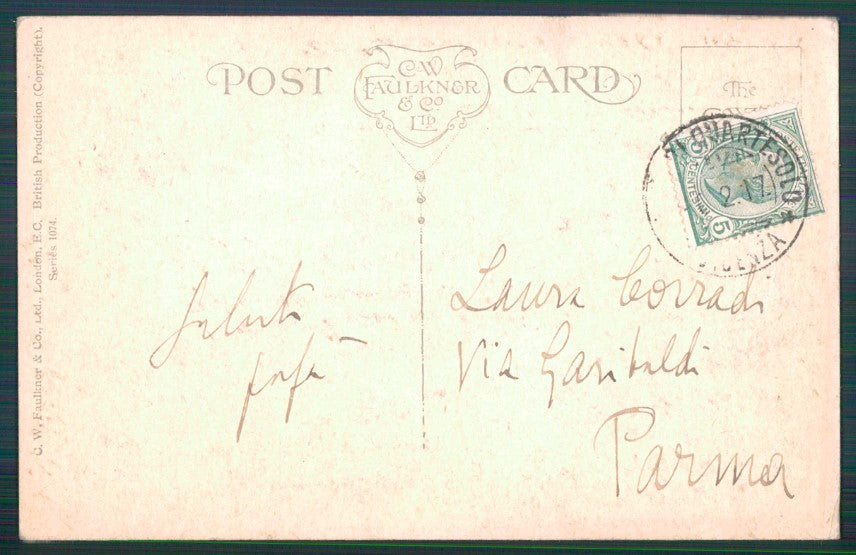 POST CARD
C.W
FAULKNER
& Co
LTD
The
C. W. Faulkner & Co., Ltd., London, E.C. British Production (Copyright).
Series 1074.
QUARTESOLO
VICENZA
2.17
CENTESIMI
5
Saluti
papà
Laura Corradi
Via Garibaldi
Parma